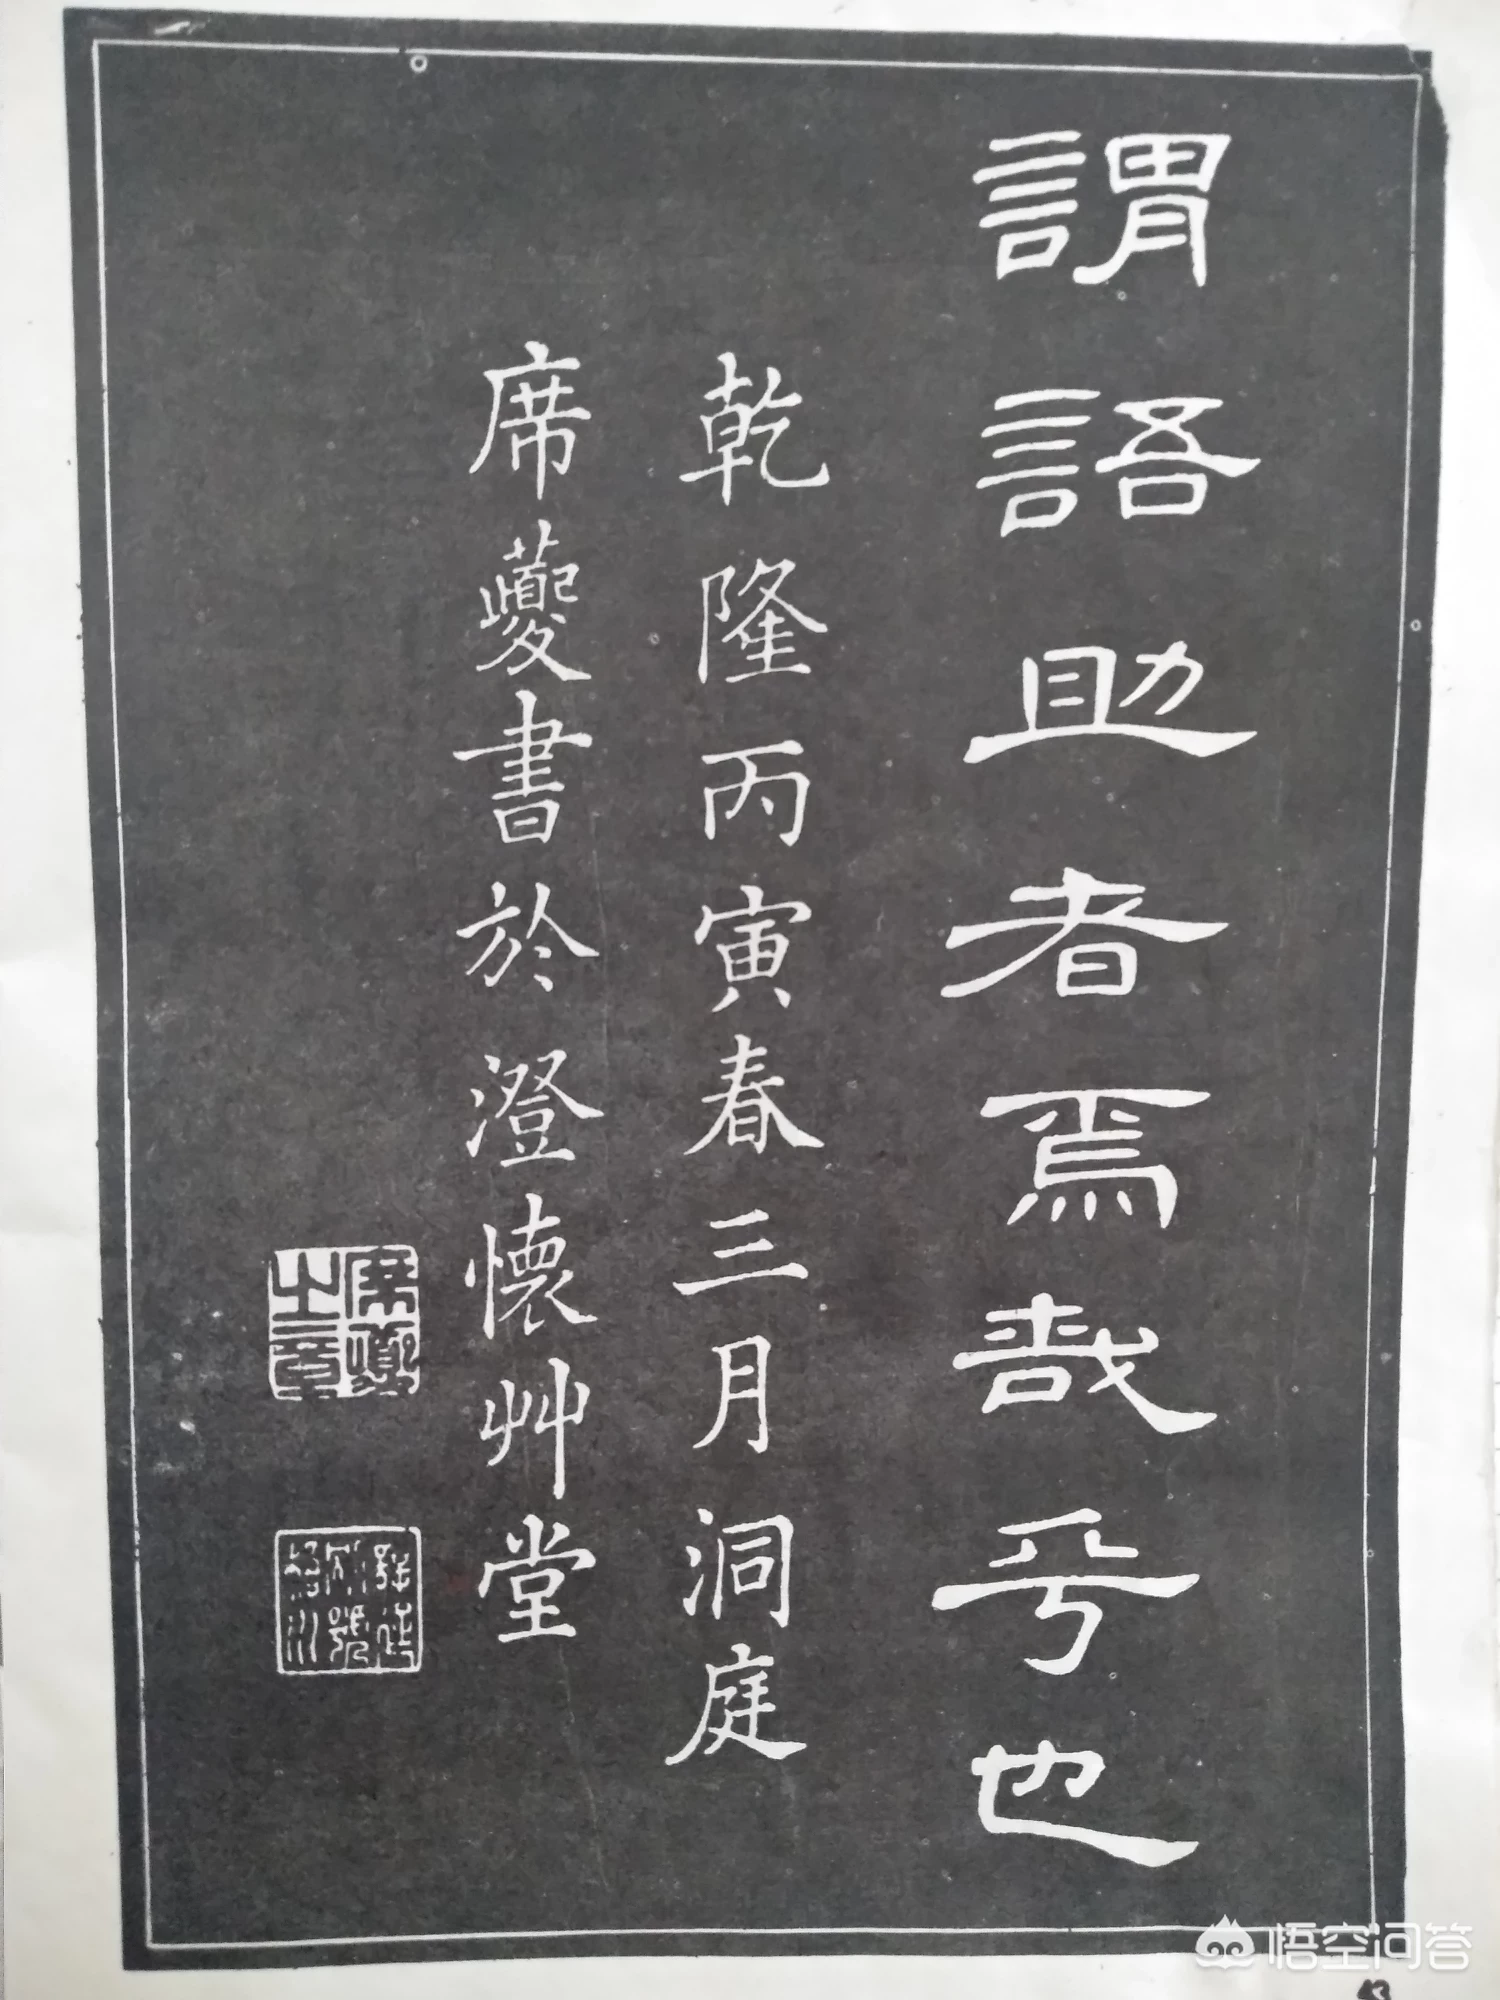 謂語助者焉哉乎也
乾隆丙寅春三月洞庭
席夔書於澄懷艸堂
席夔之章
悟空问答
43